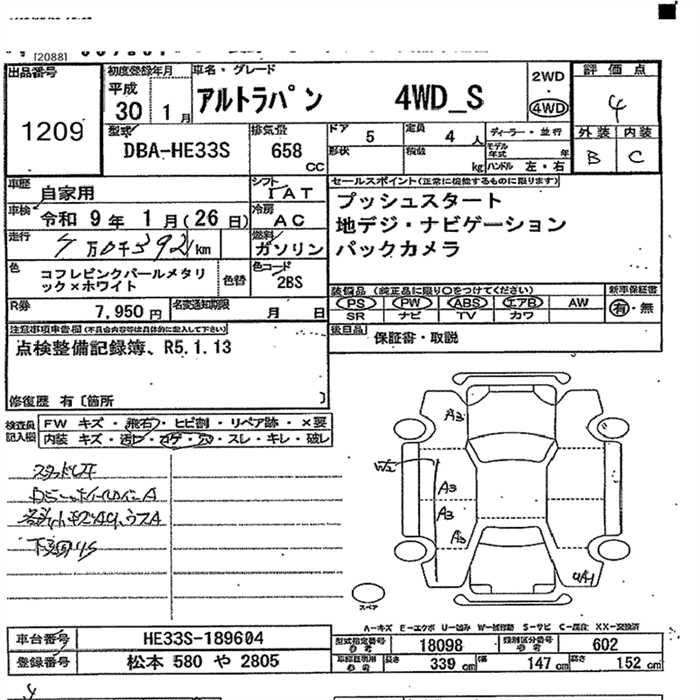 [2088]
出品番号
1209
初度登録年月
平成
30 1 月
車名・グレード
アルトラパン 4WD_S
2WD
4WD
評価点
4
外装 内装
B C
型式
DBA-HE33S
排気量
658
CC
ドア 5
定員 4 人
形状
積載 kg
ディーラー・並行
モデル年式 年
ハンドル 左・右
車歴
自家用
シフト
IAT
車検
令和 9 年 1 月 (26 日)
冷房
AC
走行
万 千 392 km
燃料
ガソリン
色
コフレピンクパールメタリ
ック×ホワイト
色替
色コード
2BS
R券
7,950 円
名変通知期限
月 日
セールスポイント(正常に機能するものに限ります)
プッシュスタート
地デジ・ナビゲーション
バックカメラ
装備品 (純正品に限り○をつけてください)
PS PW ABS エアB AW
SR ナビ TV カワ
新車保証書
有・無
後日品
保証書・取説
注意事項申告欄(不具合内容等は具体的に記入して下さい)
点検整備記録簿、R5.1.13
修復歴 有 [箇所 ]
検査員
記入欄
FW キズ・飛石・ヒビ割・リペア跡・×要
内装 キズ・汚レ・コゲ・穴・スレ・キレ・破レ
A3
W2
A3
A3
A3
スペア
A-キズ E-エクボ U-凹み W-波打動 S-サビ C-腐食 XX-交換済
車台番号
HE33S-189604
登録番号
松本 580 や 2805
型式指定番号
参考
18098
類別区分番号
参考
602
車検証明用
参考
長さ 339 cm
幅 147 cm
高さ 152 cm